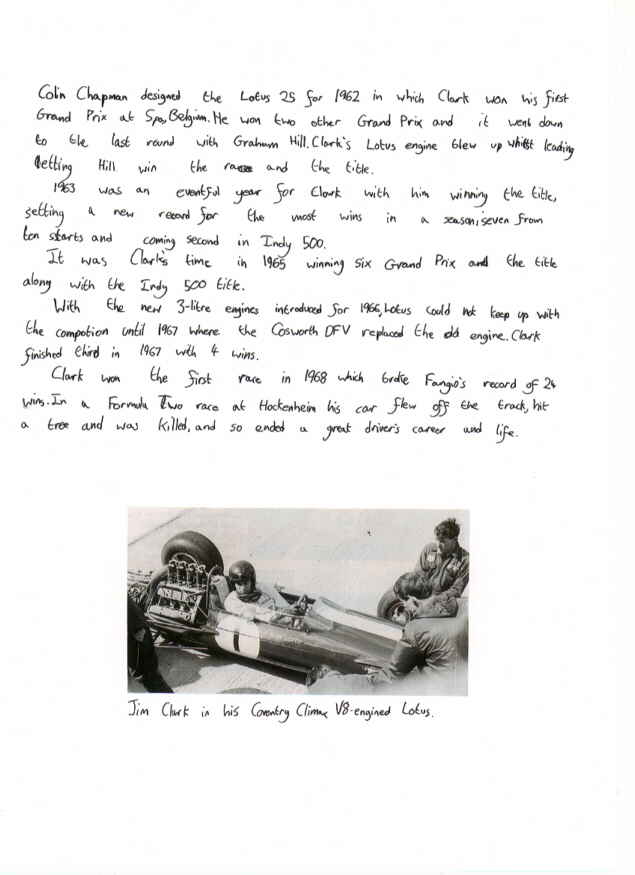 Colin Chapman designed the Lotus 25 for 1962 in which Clark won his first
Grand Prix at Spa, Belgium. He won two other Grand Prix and it went down
to the last round with Graham Hill. Clark's Lotus engine blew up whilst leading
letting Hill win the race and the title.
1963 was an eventful year for Clark with him winning the title,
setting a new record for the most wins in a season; seven from
ten starts and coming second in Indy 500.
It was Clark's time in 1965 winning six Grand Prix and the title
along with the Indy 500 title.
With the new 3-litre engines introduced for 1966, Lotus could not keep up with
the compotion until 1967 where the Cosworth DFV replaced the old engine. Clark
finished third in 1967 with 4 wins.
Clark won the first race in 1968 which broke Fangio's record of 24
wins. In a Formula Two race at Hockenheim his car flew off the track, hit
a tree and was killed, and so ended a great driver's career and life.
1
Jim Clark in his Coventry Climax V8-engined Lotus.